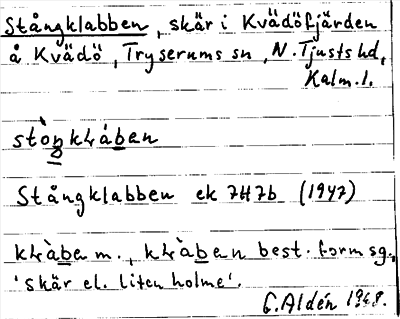 Stångklabben, skär i Kvädöfjärden
å Kvädö, Tryserums sn, N. Tjusts hd,
Kalm. l.
stòŋklàben
Stångklabben ek 7H7b (1947)
klàbe m., klàben best. form sg.,
'skär el. liten holme'.
G. Aldén 1948.